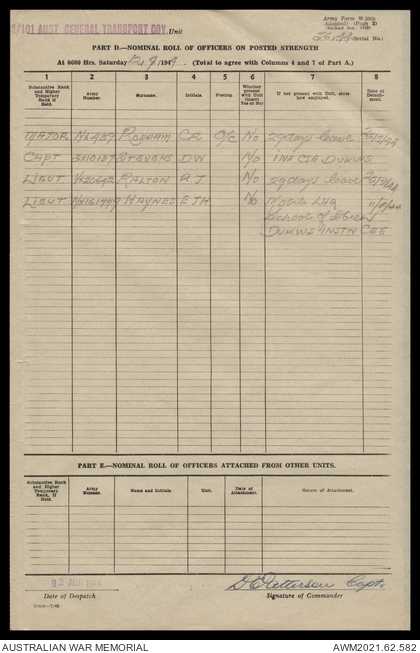 Army Form W.3008
Adapted) (Page 2)
/101 AUST GENERAL TRANSPORT COY Unit
(Serial No.)
PART D.—NOMINAL ROLL OF OFFICERS ON POSTED STRENGTH
At 0600 Hrs. Saturday 194 (Total to agree with Columns 4 and 7 of Part A.)
1 2 3 4 5 6 7 8
Substantive Rank and Higher Temporary Rank if Held. Army Number. Surname. Initials. Posting. Whether present with Unit (Insert Yes or No) If not present with Unit, state how employed. Date of Detachment.
MAJOR RODDAM C R O/C No 29 days leave
CAPT STEVENS D W No
LIEUT RALTON R J. No 29 days leave
LIEUT HAYNES E J H No Mobile LHQ
School of
DUKWS INSTR CSE
PART E.—NOMINAL ROLL OF OFFICERS ATTACHED FROM OTHER UNITS.
Substantive Rank and Higher Temporary Rank, if Held. Army Number. Name and Initials. Unit. Date of Attachment. Nature of Attachment.
Capt.
Date of Despatch Signature of Commander
AUSTRALIAN WAR MEMORIAL AWM2021.62.582